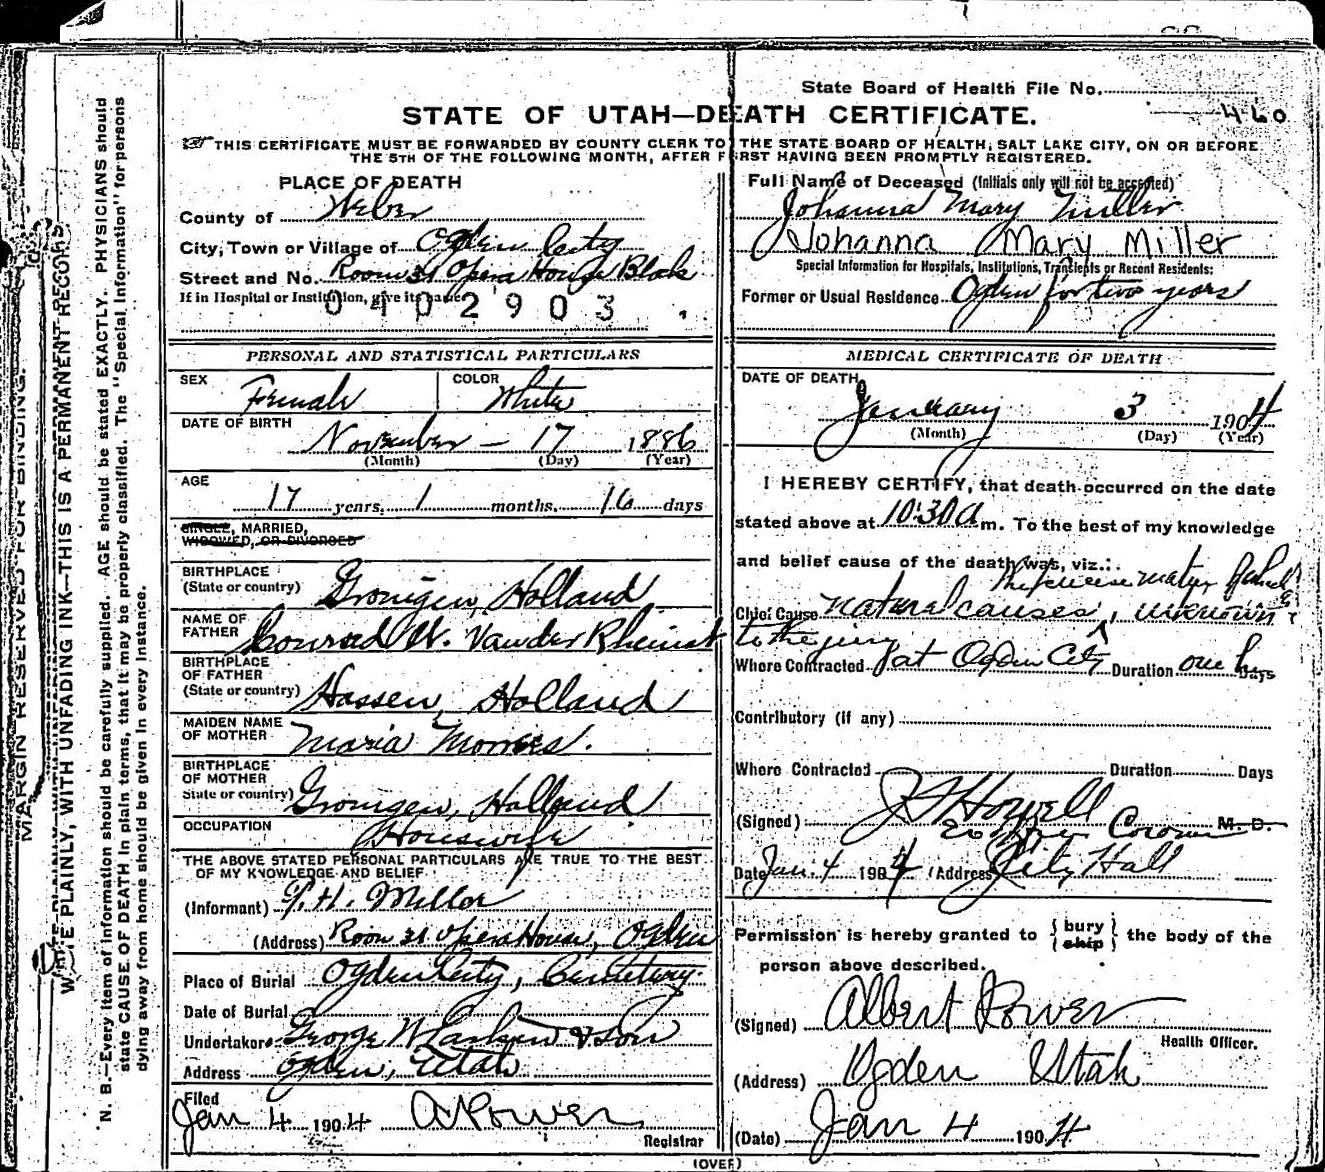 State Board of Health File No.
460
STATE OF UTAH—DEATH CERTIFICATE.
THIS CERTIFICATE MUST BE FORWARDED BY COUNTY CLERK TO THE STATE BOARD OF HEALTH, SALT LAKE CITY, ON OR BEFORE
THE 5TH OF THE FOLLOWING MONTH, AFTER FIRST HAVING BEEN PROMPTLY REGISTERED.
MARGIN RESERVED FOR BINDING.
WRITE PLAINLY, WITH UNFADING INK—THIS IS A PERMANENT RECORD
N. B.—Every item of information should be carefully supplied. AGE should be stated EXACTLY. PHYSICIANS should
state CAUSE OF DEATH in plain terms, that it may be properly classified. The "Special Information" for persons
dying away from home should be given in every instance.
PLACE OF DEATH
County of Weber
City, Town or Village of Ogden City
Street and No. Room 31 Opera House Block
If in Hospital or Institution, give its name
0402903
PERSONAL AND STATISTICAL PARTICULARS
SEX Female COLOR White
DATE OF BIRTH
November - 17 1886
(Month) (Day) (Year)
AGE
17 years, 1 months, 16 days
SINGLE, MARRIED,
WIDOWED, OR DIVORCED
BIRTHPLACE
(State or country) Gronigen, Holland
NAME OF
FATHER Conrad W. Vander Rheinst
BIRTHPLACE
OF FATHER
(State or country) Hassen, Holland
MAIDEN NAME
OF MOTHER Maria
BIRTHPLACE
OF MOTHER
State or country) Gronigen, Holland
OCCUPATION Housewife
THE ABOVE STATED PERSONAL PARTICULARS ARE TRUE TO THE BEST
OF MY KNOWLEDGE AND BELIEF
(Informant) P. H. Miller
(Address) Room 31 Opera House, Ogden
Place of Burial Ogden City, Cemetery.
Date of Burial
Undertaker George W Larkin & Son
Address Ogden, Utah
Filed
Jan 4 1904 A Power
Registrar
Full Name of Deceased (Initials only will not be accepted)
Johanna Mary Miller
Johanna Mary Miller
Special Information for Hospitals, Institutions, Transients or Recent Residents:
Former or Usual Residence Ogden for two years
MEDICAL CERTIFICATE OF DEATH
DATE OF DEATH
January 3 1904
(Month) (Day) (Year)
I HEREBY CERTIFY, that death occurred on the date
stated above at 10:30 a m. To the best of my knowledge
and belief cause of the death was, viz.:
Chief Cause natural causes, unknown
to the jury
Where Contracted at Ogden City Duration one h Days
Contributory (if any)
Where Contracted Duration Days
(Signed) J Howell
Coroner M. D.
Date Jan. 4 1904 (Address) City Hall
Permission is hereby granted to { bury ship } the body of the
person above described.
(Signed) Albert Power
Health Officer.
(Address) Ogden Utah
(Date) Jan 4 1904
(OVER)